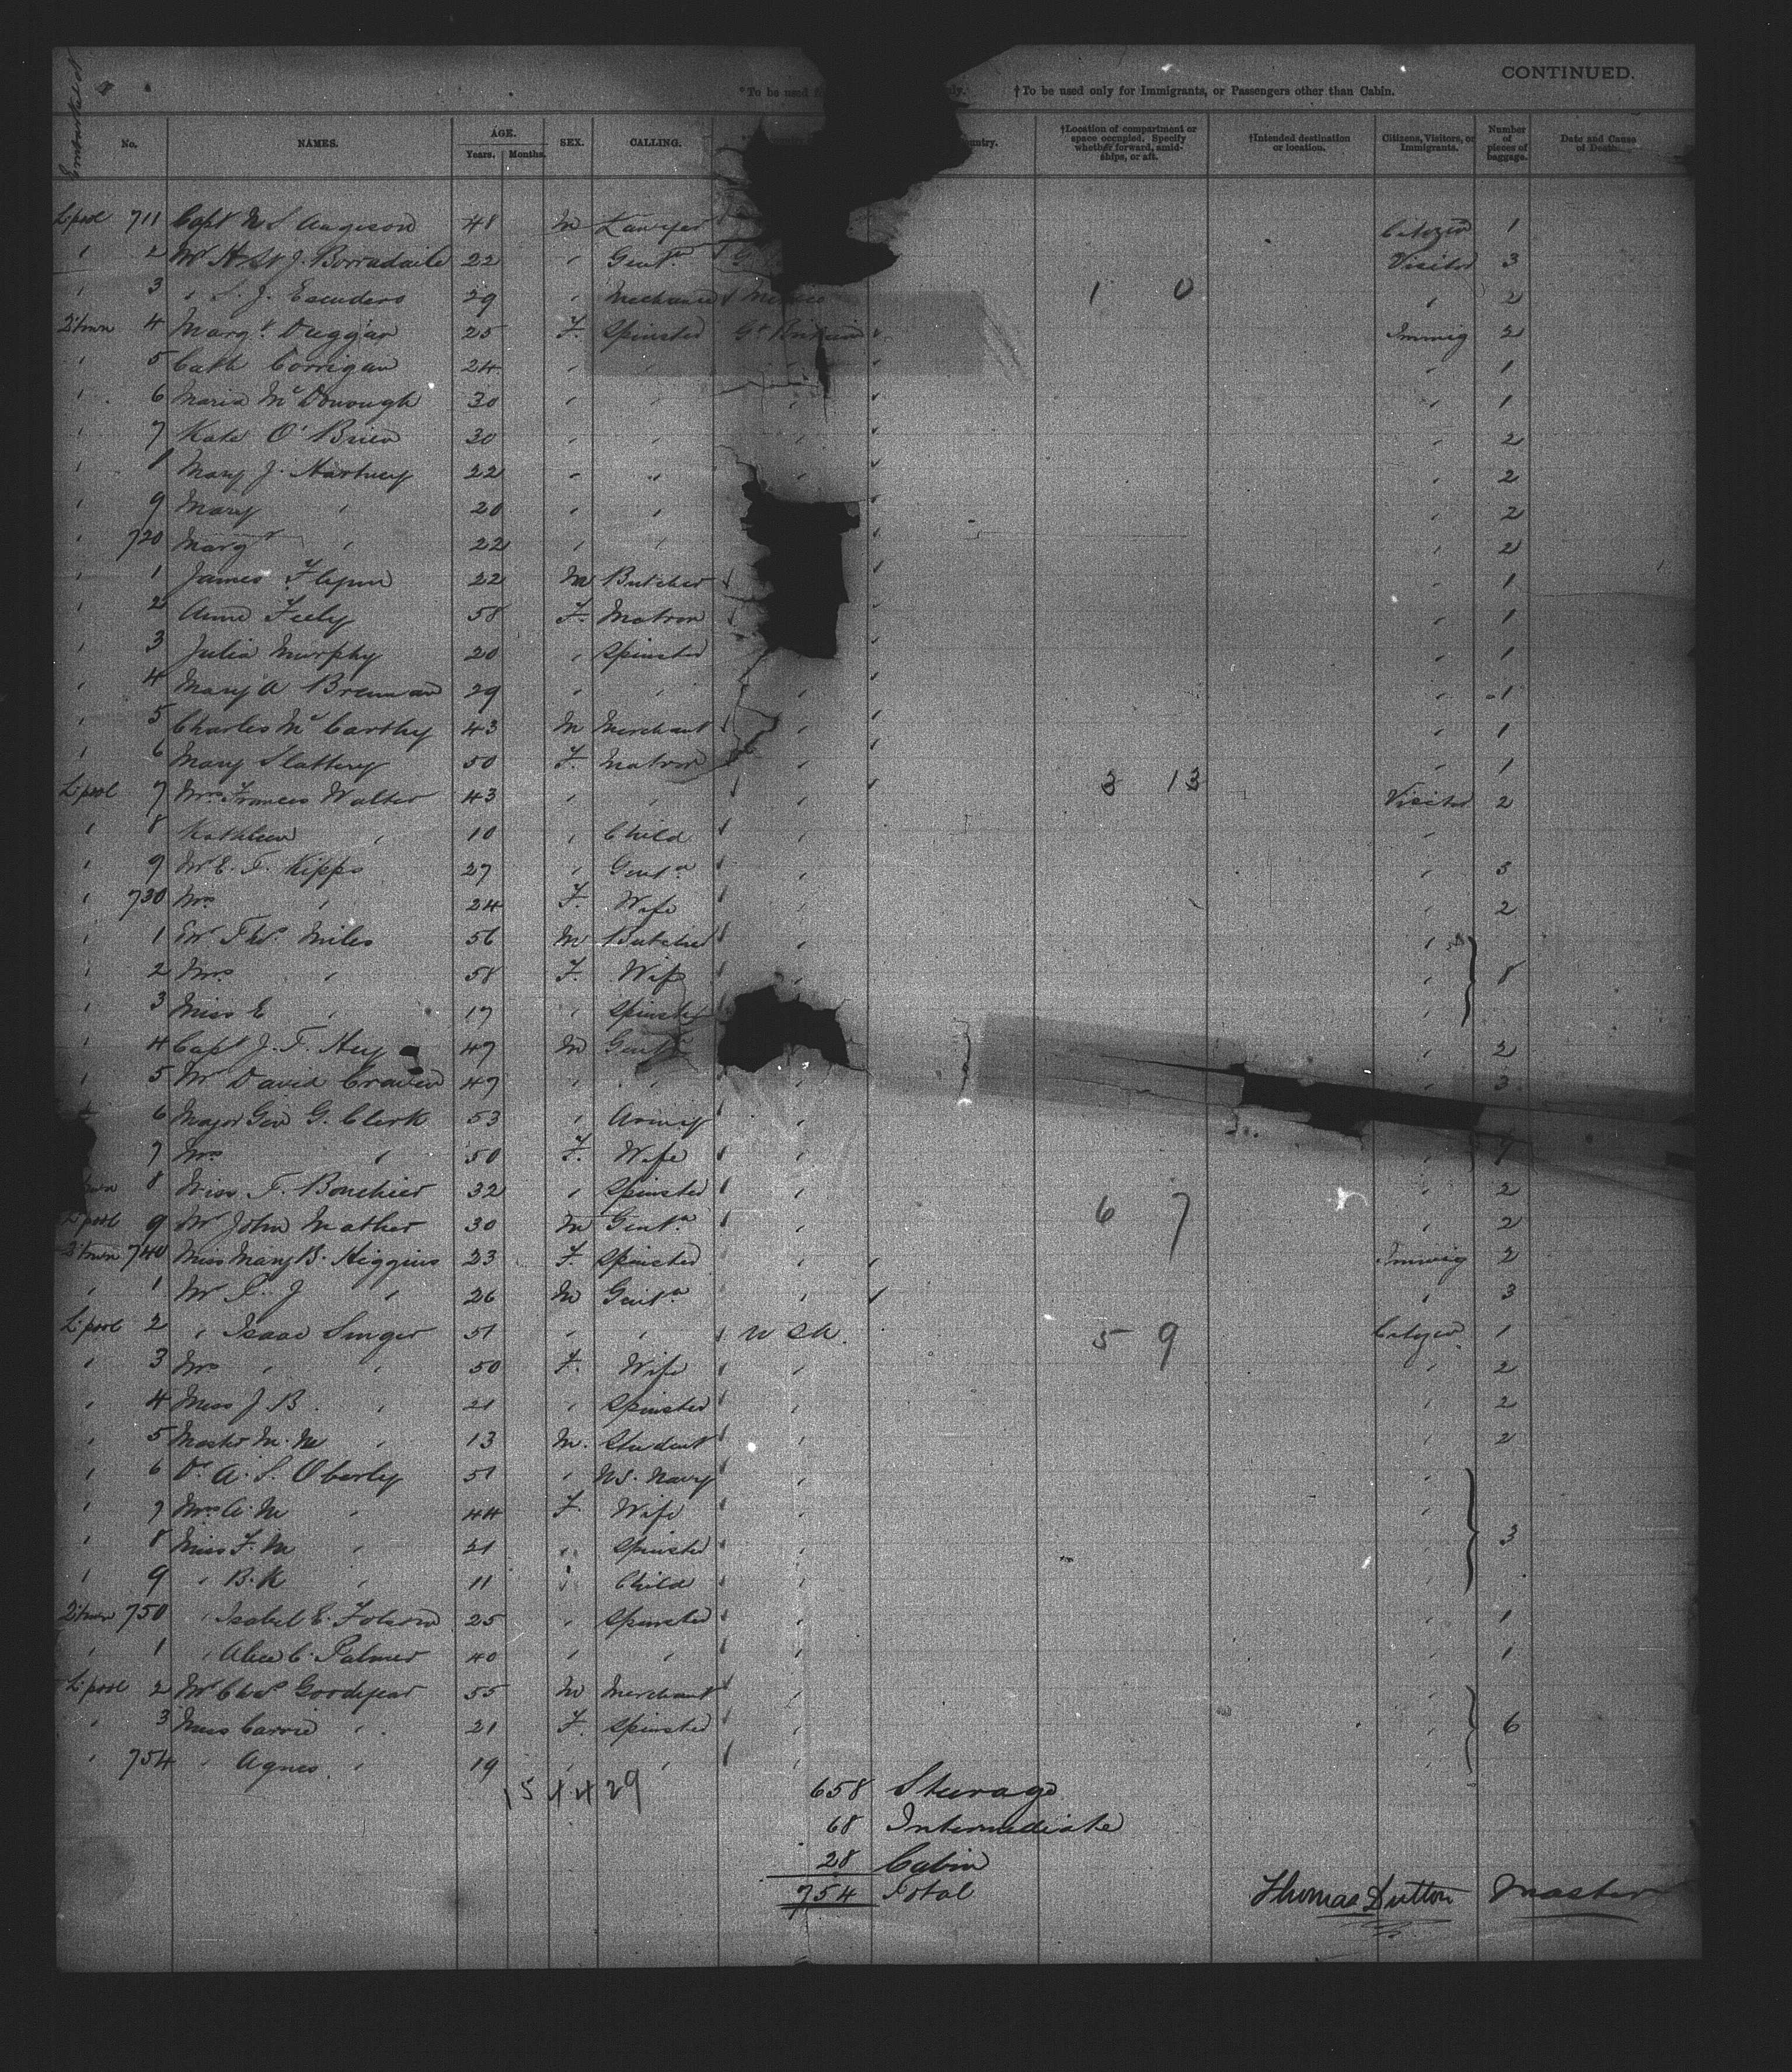 CONTINUED.
*To be used f ly. †To be used only for Immigrants, or Passengers other than Cabin.
Embarked at No. NAMES. AGE. Years. Months. SEX. CALLING. untry. †Location of compartment or space occupied. Specify whether forward, amidships, or aft. †Intended destination or location. Citizens, Visitors, or Immigrants. Number of pieces of baggage. Date and Cause of Death.
L'pool 711 Capt 48 M Lawyer Citizen 1
" 2 Mr H. St J. Borradaile 22 " Gentn G Visitor 3
" 3 " S. J. Escudero 29 " Mechanic Mexico 1 0 " 2
Q'town 4 Margt Duggan 25 F. Spinster Gt Britain Immig 2
" 5 Cath Corrigan 24 " " " " 1
" 6 Maria McDonough 30 " " " " 1
" 7 Kate O'Brien 30 " " " " 2
" 8 Mary J. Hartney 22 " " " " 2
" 9 Mary " 20 " " " 2
" 720 Margt " 22 " " " 2
" 1 James Flynn 22 M Butcher " 1
" 2 Anne Feely 58 F. Matron " 1
" 3 Julia Murphy 20 " Spinster " 1
" 4 Mary A Brennan 29 " " " " 1
" 5 Charles McCarthy 43 M Merchant " " 1
" 6 Mary Slattery 50 F. Matron " " 1
L'pool 7 Mrs Frances Walter 43 " " " 3 13 Visitor 2
" 8 Kathleen " 10 " Child " "
" 9 Mr E. F. Kipps 27 " Gentn " " 5
" 730 Mrs " 24 F. Wife " " 2
" 1 Mr Thos. Miles 56 M Butcher " "
" 2 Mrs " 58 F. Wife " " 8
" 3 Miss E " 17 " Spinster "
" 4 Capt J. F. Hey 47 M Gentn " 2
" 5 Mr David Craven 47 " " " " 3
6 Major Gen G. Clerk 53 " Army "
7 Mrs " 50 F. Wife " " 9
wn 8 Miss F. Bouchier 32 " Spinster " " 2
L'pool 9 Mr John Mather 30 M Gentn " 6 7 " 2
Q'town 740 Miss Mary B. Higgins 23 F. Spinster " Immig 2
" 1 Mr " 26 M Gentn " " 3
L'pool 2 " Isaac Singer 51 " " U S A. 5 9 Citizen 1
" 3 Mrs " " 50 F. Wife " " 2
" 4 Miss J B. " 21 " Spinster " " 2
" 5 Mastr M. M " 13 M. Student " " 2
" 6 Dr. A. S. Oberly 51 " U.S. Navy " "
" 7 Mrs A. M " 44 F. Wife " "
" 8 Miss F. M " 21 " Spinster " " 3
" 9 " B. K " 11 " Child " "
Q'town 750 " Isabel E. Folsom 25 " Spinster " " 1
" 1 " Alice C. Palmer 40 " " " " 1
L'pool 2 Mr Chas Goodyear 55 M Merchant " "
" 3 Miss Carrie " 21 F. Spinster " " 6
" 754 " Agnes " 19 " " " "
15 4 4 29
658 Steerage
68 Intermediate
28 Cabin
754 Total
Thomas Dutton Master